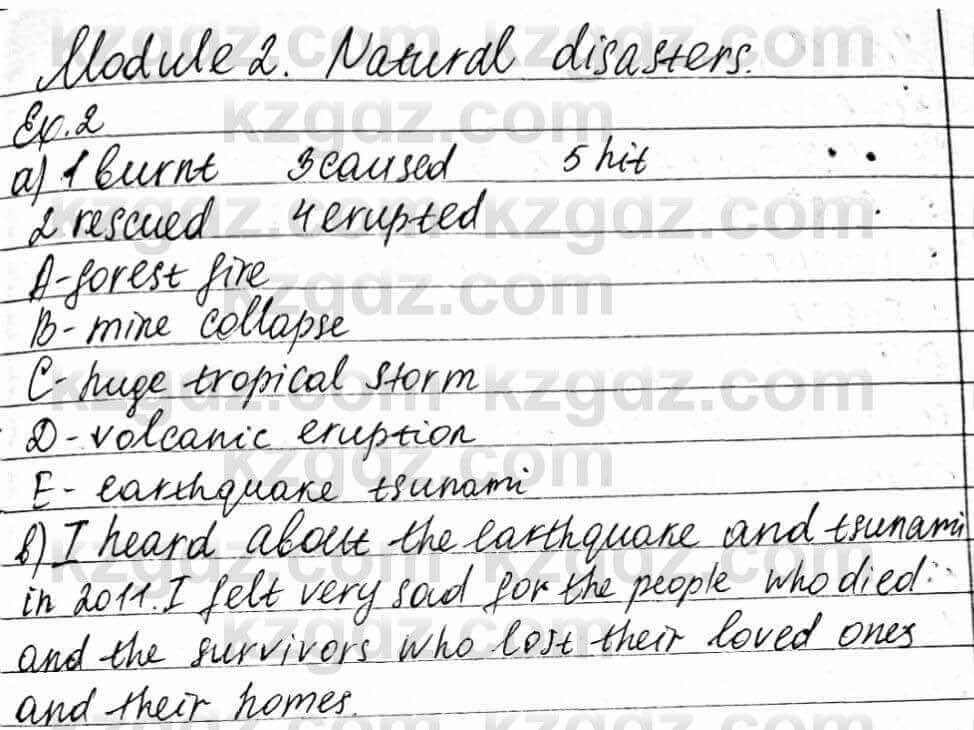 Module 2. Natural disasters.
Ex. 2
a) 1 burnt 3 caused 5 hit
2 rescued 4 erupted
A - forest fire
B - mine collapse
C - huge tropical storm
D - volcanic eruption
E - earthquake tsunami
b) I heard about the earthquake and tsunami
in 2011. I felt very sad for the people who died
and the survivors who lost their loved ones
and their homes.
kzgdz.com